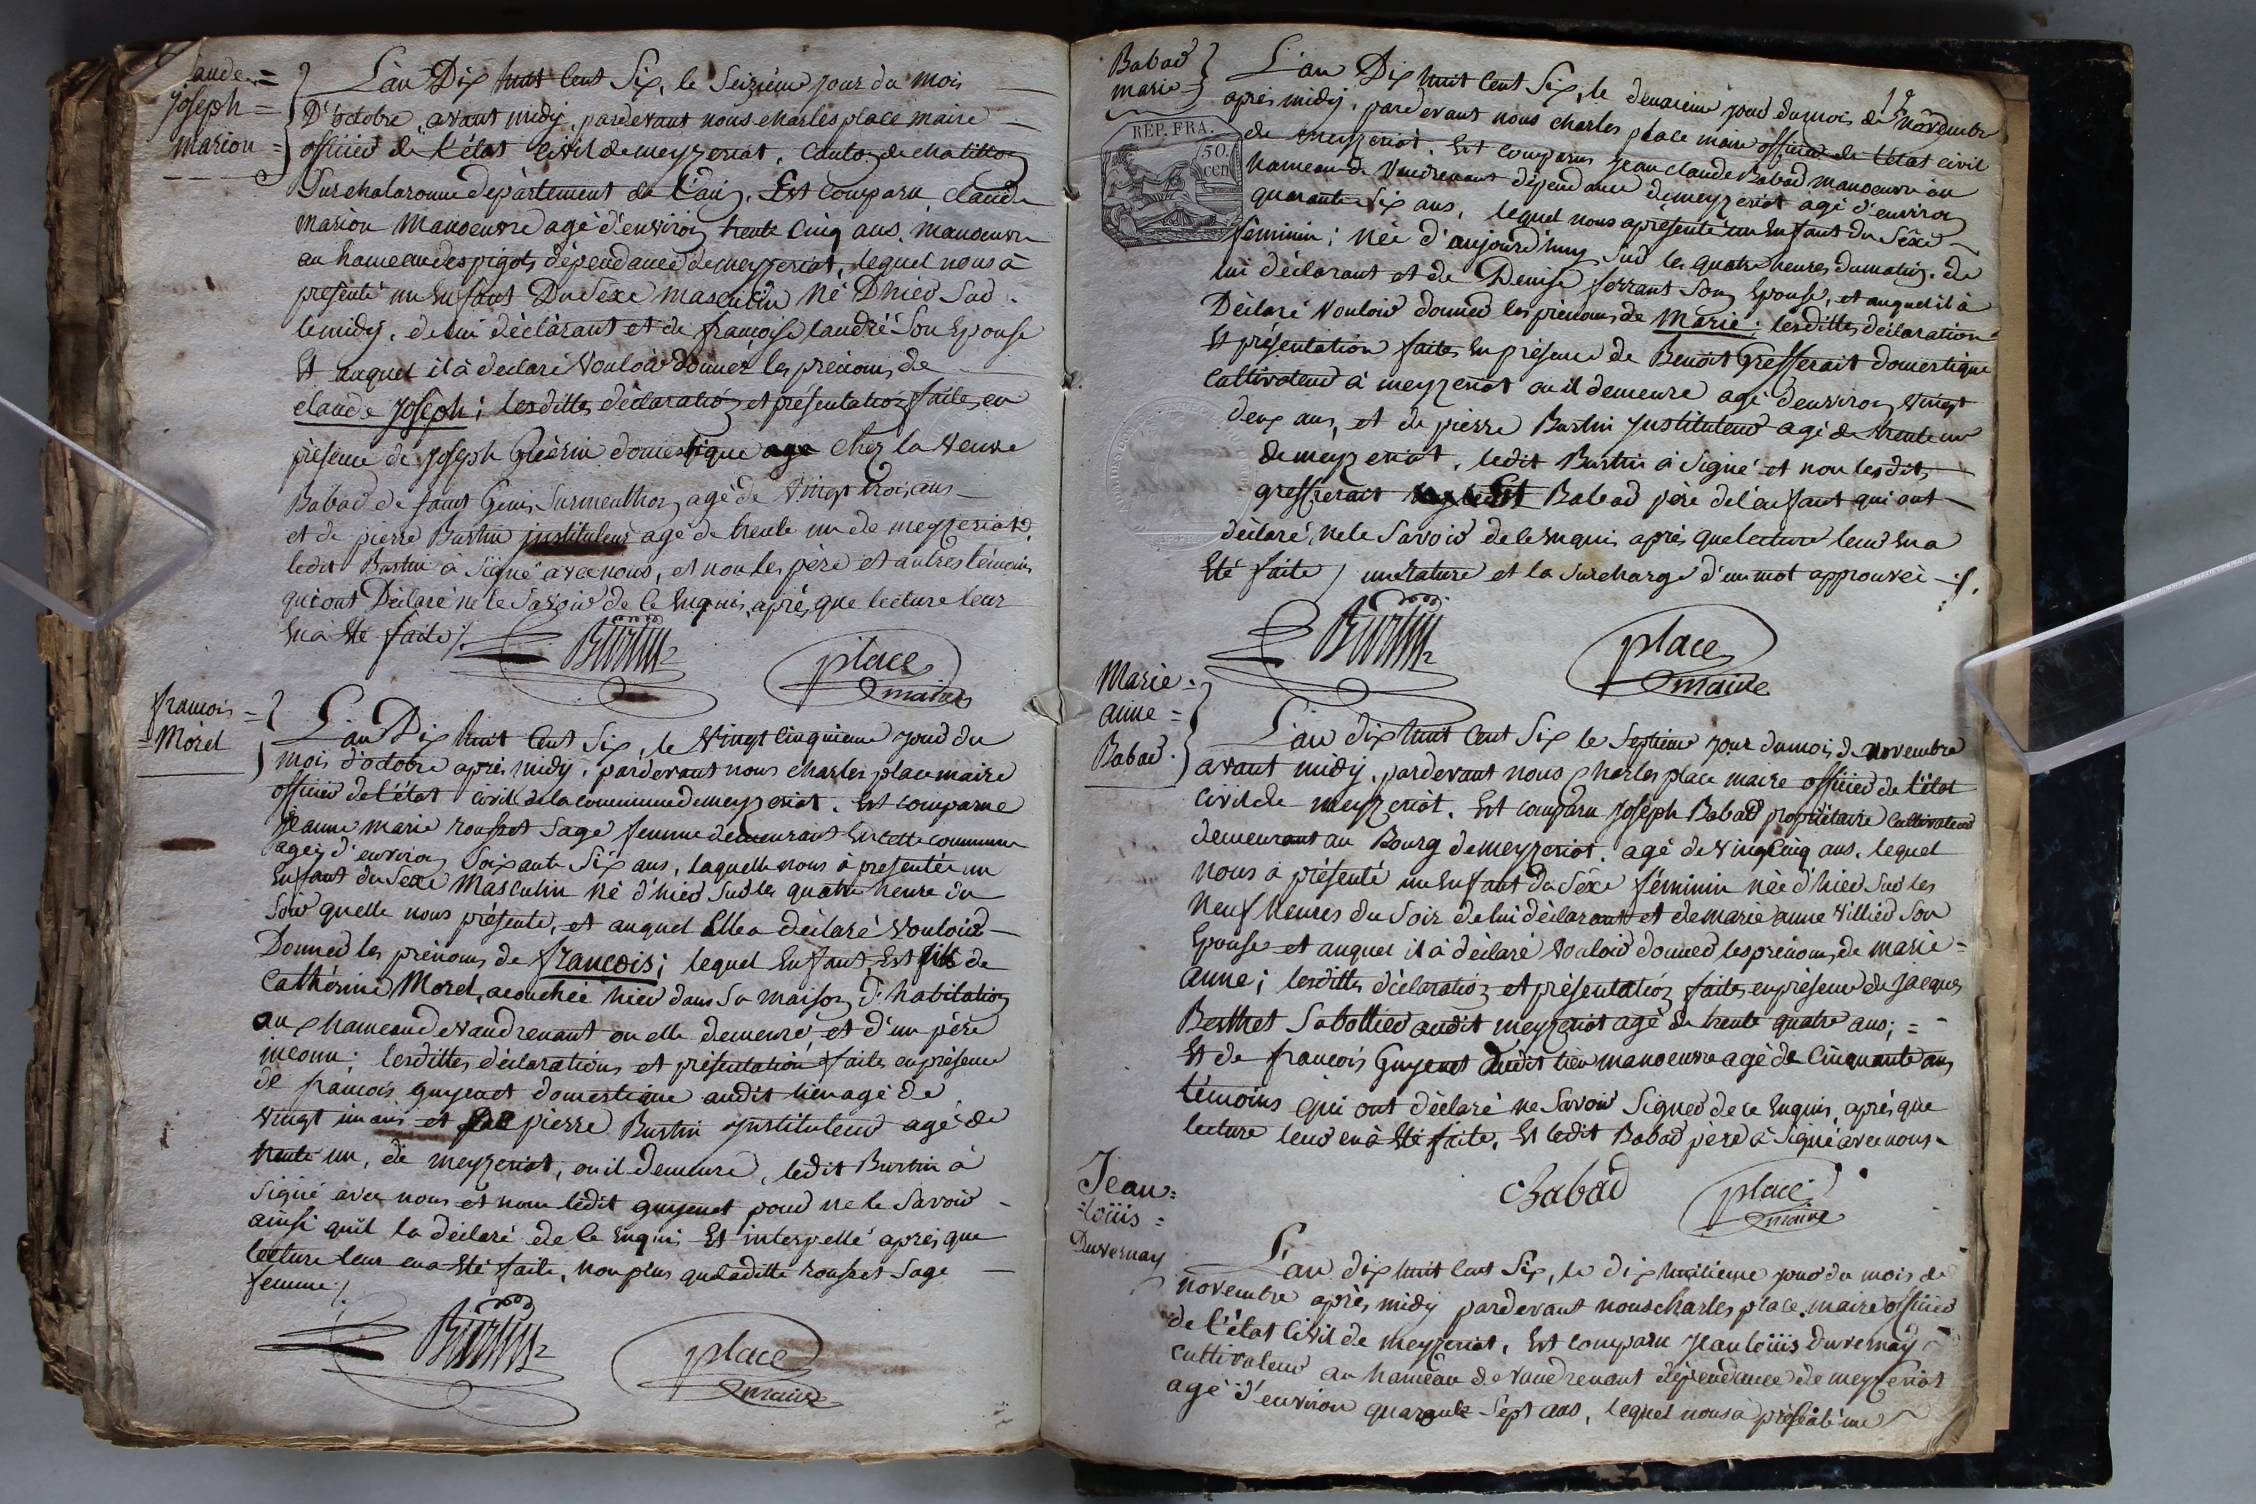 Claude =
joseph =
Marion =
L'an Dix huit Cent Six, le Seizième jour du mois
D'octobre, avant midy, pardevant nous charles place maire
officier de l'état Civil de meyzeriat, canton de chatillon
Sur chalaronne département de l'ain, Est comparu claude
marion Manoeuvre agé d'environ trente Cinq ans, manoeuvre
au hameau des pigots dépendance de meyzeriat, lequel nous à
présenté un Enfant Du Séxe masculin Né D'hier Sur
le midy, de lui déclarant et de françoise laudré Son Epouse
Et auquel il à déclaré Vouloir donner les prénoms de
claude joseph; lesdittes déclaration et présentation faites en
présence de joseph Guérin domestique age chez la Veuve
Babad de saint Genis Surmenthon agé de Vingt trois ans
et de pierre Burtin instituteur agé de trente un de meyzeriat,
ledit Burtin à Signé avec nous, et non les père et autres témoins
qui ont Déclaré ne le Savoir de ce Enquis, après que lecture leur
En à Eté faite ./.
Burtin
place
maire
francois =
= Morel
L'an Dix huit Cent Six, le Vingt Cinquieme jour du
mois d'octobre après midy, pardevant nous charles place maire
officier de l'état civil de la commune de meyzeriat. Est comparue
jeanne marie rousset Sage femme demeurant En cette commune
agée d'environ Soixante Six ans, laquelle nous à présenté un
Enfant du Sexe Masculin Né d'hier Sur les quatre heure du
Soir quelle nous présente, et auquel Elle a déclaré Vouloir
Donner les prénoms de francois; lequel Enfant, Est fils de
Cathérine Morel, acouchée hier dans Sa maison d'habitation
au hameau de vaudrenant ou elle demeure, et d'un père
inconnu: lesdittes déclarations et présentation faites en présence
de francois guyenet domestique audit lieu agé de
Vingt un ans et de pierre Burtin instituteur agé de
trente un, de meyzeriat, ou il demeure, ledit Burtin à
Signé avec nous et non ledit guyenet pour ne le Savoir
ainsi qu'il la déclaré de ce Enquis Et interpellé après que
lecture leur en a Eté faite, non plus que laditte rousset Sage
femme ./.
Burtin
place
maire
Babad
marie
12
RÉP. FRA.
50.
cen
L'an Dix huit Cent Six, le deuxieme jour du mois de Novembre
après midy, pardevant nous charles place maire officier de l'état civil
de meyzeriat. Est comparu jean claude Babad manoeuvre au
hameau de Vaudrenant dépendance de meyzeriat agé d'environ
quarante Six ans, lequel nous a présenté un Enfant du Séxe
féminin; Née d'aujourd'huy Sur les quatre heures du matin. de
lui déclarant et de Denise ferrant Son Epouse, et auquel il à
Déclaré Vouloir donner les prénoms de Marie: lesdittes déclaration
Et présentation faites En présence de Benoit Gresserait domestique
Cultivateur à meyzeriat ou il demeure agé d'environ Vingt
deux ans, et de pierre Burtin instituteur agé de trente un
de meyzeriat, ledit Burtin à Signé et non lesdits
gresserait Et Babad père de l'enfant qui ont
déclaré, ne le Savoir de ce Enquis après que lecture leur En a
Eté faite / une rature et la Surcharge d'un mot approuvée ./.
Burtin
place
maire
Marie =
anne =
Babad.
L'an dix huit Cent Six le Septième jour du mois de novembre
avant midy, pardevant nous charles place maire officier de l'état
civil de meyzeriat. Est comparu joseph Babad propriétaire Cultivateur
demeurant au Bourg de meyzeriat. agé de Vingt Cinq ans. lequel
nous à présenté un Enfant du Séxe féminin née d'hier Sur les
Neuf heures du Soir de lui déclarant et de marie anne Villier Son
Epouse et auquel il à déclaré Vouloir donner les prénoms de marie =
anne; lesdittes déclaration et présentation faites en présence de jacques
Berthet Sabottier audit meyzeriat agé de trente quatre ans; =
Et de francois Guyenet dudit lieu manoeuvre agé de Cinquante ans
témoins qui ont déclaré ne Savoir Signer de ce Enquis, après que
lecture leur en à Eté faite, Et ledit Babad père à Signé avec nous
Babad
place
maire
Jean =
= loüis =
Duvernay
L'an dix huit Cent Six, le dix huitieme jour du mois de
novembre après midy pardevant nous charles place maire officier
de l'état Civil de meyzeriat, Est comparu jean loüis duvernay
cultivateur au hameau de Vaudrenant dépendance de meyzeriat
agé d'environ quarante Sept ans, lequel nous a présenté un